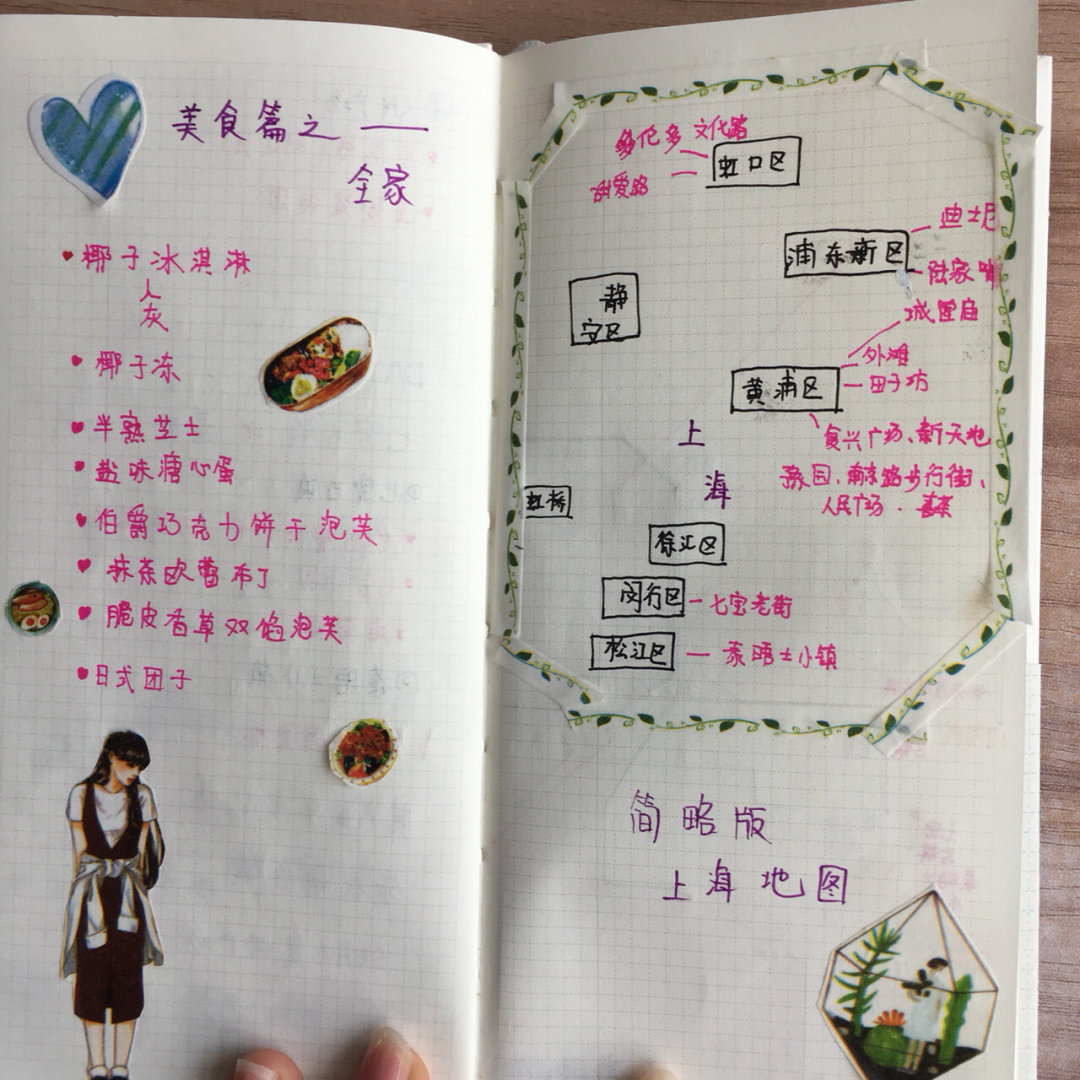 美食篇之——
全家
椰子冰淇淋
椰子冻
半熟芝士
盐味溏心蛋
伯爵巧克力饼干泡芙
抹茶欧蕾布丁
脆皮香草双馅泡芙
日式团子
多伦多文化路
甜爱路
虹口区
迪士尼
浦东新区
陆家嘴
静
安区
城隍庙
外滩
黄浦区
田子坊
复兴广场、新天地
豫园、南京路步行街、
人民广场、
上
海
虹桥
徐汇区
闵行区
七宝老街
松江区
泰晤士小镇
简略版
上海地图